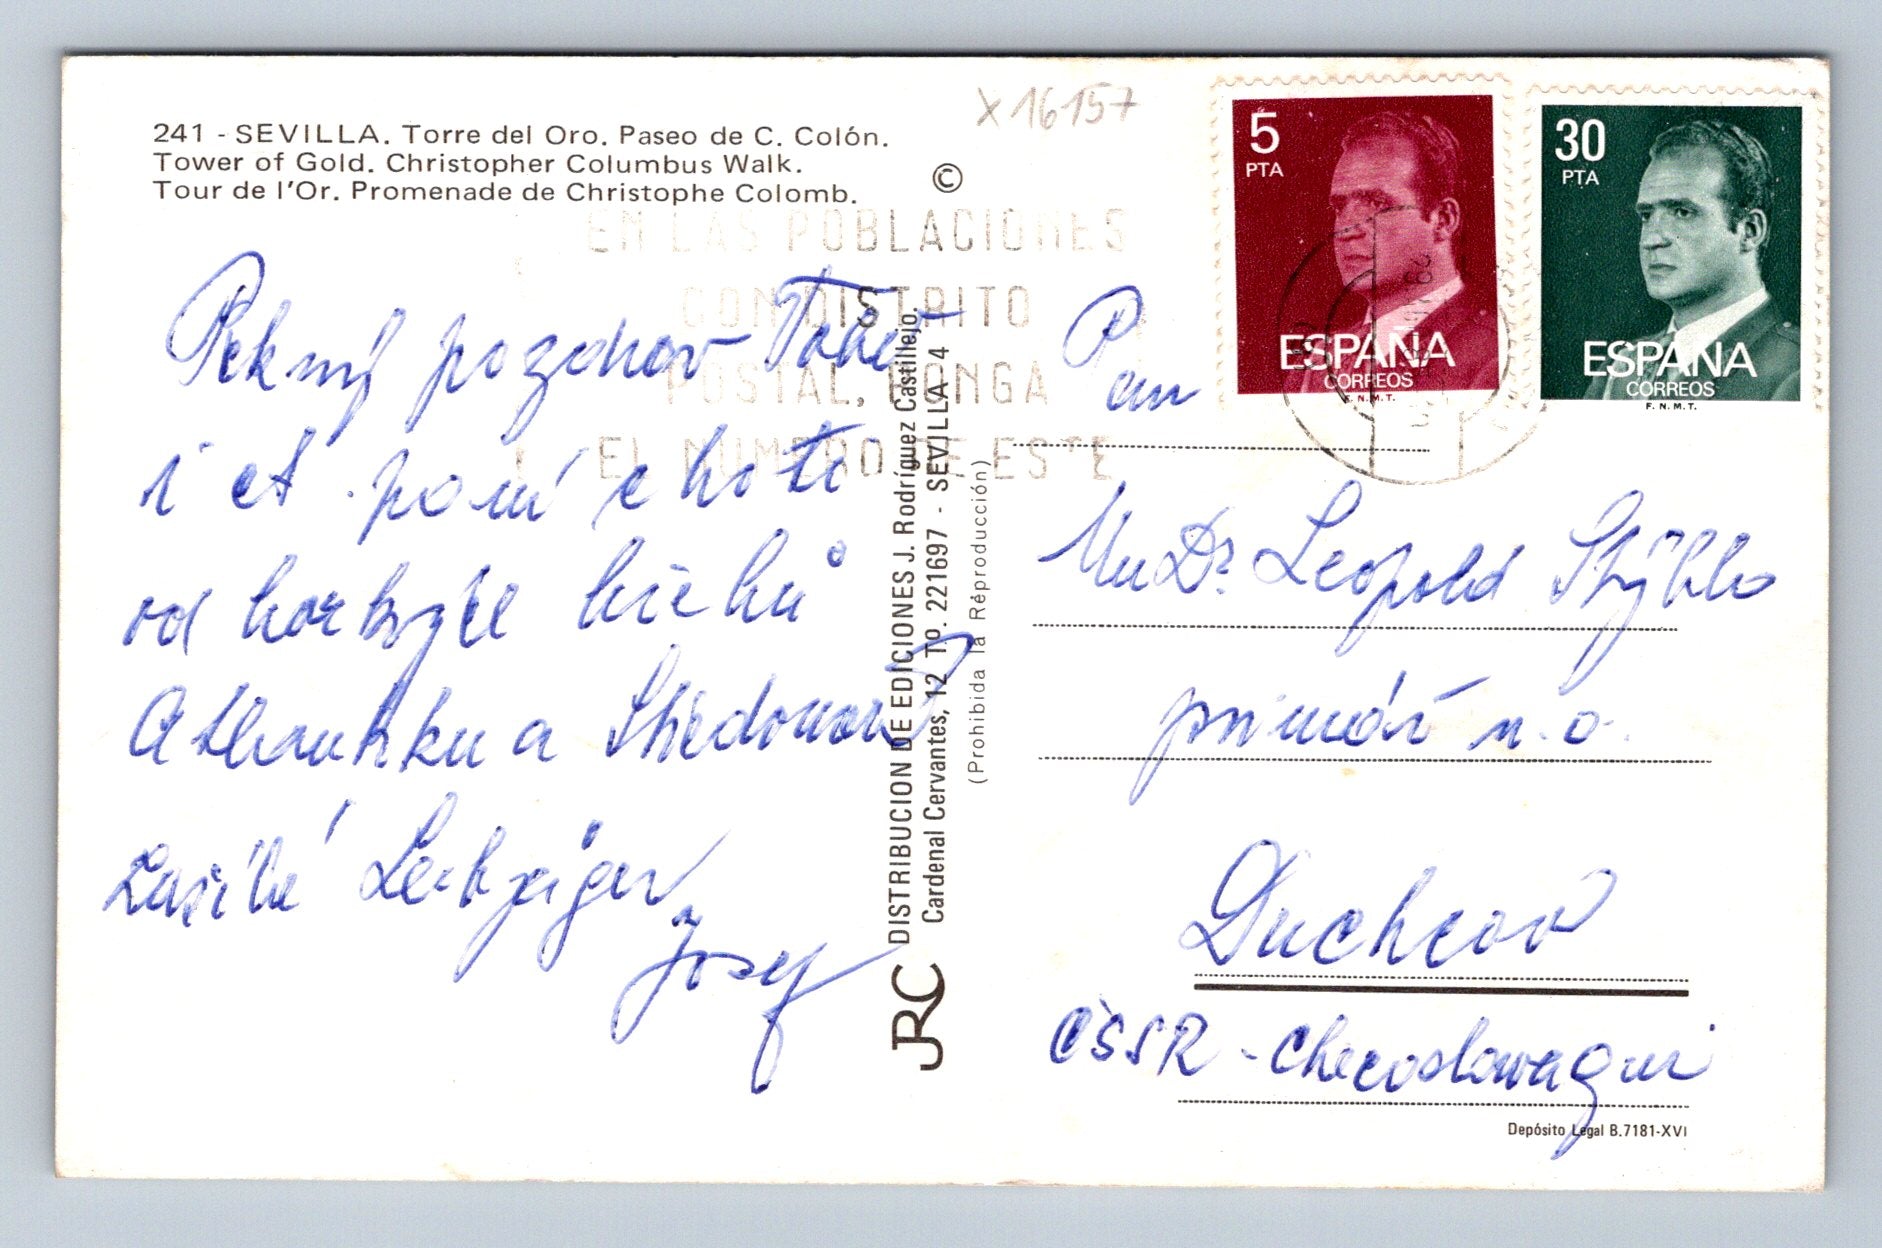 241 - SEVILLA. Torre del Oro. Paseo de C. Colón.
Tower of Gold. Christopher Columbus Walk.
Tour de l'Or. Promenade de Christophe Colomb.
©
X16157
EN LAS POBLACIONES
CON DISTRITO
POSTAL, PONGA
EL NUMERO DE ESTE
5
PTA
ESPAÑA
CORREOS
F.N.M.T.
30
PTA
ESPAÑA
CORREOS
F.N.M.T.
Pěkný pozdrav Tobě
i ct. paní choti
od horkých břehů
Atlantiku a Středomoří
zasílá
Josef
JRC DISTRIBUCION DE EDICIONES J. Rodríguez Castillejo
Cardenal Cervantes, 12 Tº. 221697 - SEVILLA-4
(Prohibida la Réproducción)
Pan
MuDr. Leopold Stýblo
primář n.o.
Duchcov
ČSSR - Checoslowaqui
Depósito Legal B.7181-XVI